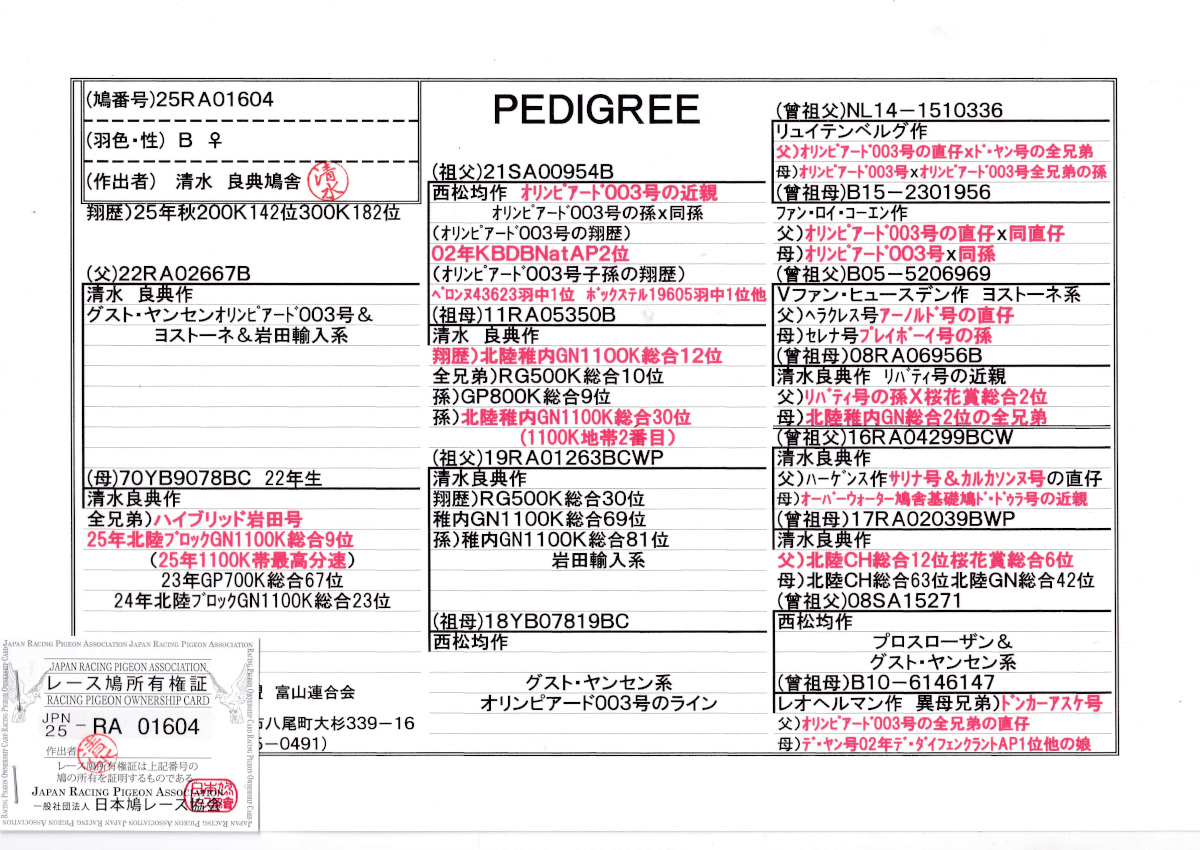 (鳩番号)25RA01604
(羽色・性) B ♀
(作出者) 清水 良典鳩舎
清水
翔歴)25年秋200K142位300K182位
(父)22RA02667B
清水 良典作
グスト・ヤンセンｵﾘﾝﾋﾟｱｰﾄﾞ003号＆
ヨストーネ＆岩田輸入系
(母)70YB9078BC 22年生
清水良典作
全兄弟)ハイブリッド岩田号
25年北陸ﾌﾞﾛｯｸGN1100K総合9位
(25年1100K帯最高分速)
23年GP700K総合67位
24年北陸ﾌﾞﾛｯｸGN1100K総合23位
富山連合会
八尾町大杉339－16
5－0491)
PEDIGREE
(祖父)21SA00954B
西松均作 ｵﾘﾝﾋﾟｱｰﾄﾞ003号の近親
ｵﾘﾝﾋﾟｱｰﾄﾞ003号の孫x同孫
(ｵﾘﾝﾋﾟｱｰﾄﾞ003号の翔歴)
02年KBDBNatAP2位
(ｵﾘﾝﾋﾟｱｰﾄﾞ003号子孫の翔歴)
ﾍﾟﾛﾝﾇ43623羽中1位 ﾎﾞｯｸｽﾃﾙ19605羽中1位他
(祖母)11RA05350B
清水 良典作
翔歴)北陸稚内GN1100K総合12位
全兄弟)RG500K総合10位
孫)GP800K総合9位
孫)北陸稚内GN1100K総合30位
(1100K地帯2番目)
(祖父)19RA01263BCWP
清水良典作
翔歴)RG500K総合30位
稚内GN1100K総合69位
孫)稚内GN1100K総合81位
岩田輸入系
(祖母)18YB07819BC
西松均作
グスト・ヤンセン系
オリンピアード003号のライン
(曾祖父)NL14－1510336
リュイテンベルグ作
父)ｵﾘﾝﾋﾟｱｰﾄﾞ003号の直仔xﾄﾞ･ヤン号の全兄弟
母)ｵﾘﾝﾋﾟｱｰﾄﾞ003号xｵﾘﾝﾋﾟｱｰﾄﾞ003号全兄弟の孫
(曾祖母)B15－2301956
ﾌｧﾝ･ロイ・コーエン作
父)ｵﾘﾝﾋﾟｱｰﾄﾞ003号の直仔x同直仔
母)ｵﾘﾝﾋﾟｱｰﾄﾞ003号x同孫
(曾祖父)B05－5206969
Vファン・ヒュースデン作 ヨストーネ系
父)ﾍﾗｸﾚｽ号アーノルド号の直仔
母)セレナ号プレイボーイ号の孫
(曾祖母)08RA06956B
清水良典作 ﾘﾊﾞﾃｨ号の近親
父)ﾘﾊﾞﾃｨ号の孫X桜花賞総合2位
母)北陸稚内GN総合2位の全兄弟
(曾祖父)16RA04299BCW
清水良典作
父)ﾊｰｹﾞﾝｽ作サリナ号＆カルカソンヌ号の直仔
母)オーバーウォーター鳩舎基礎鳩ﾄﾞ･ﾄﾞｩﾗ号の近親
(曾祖母)17RA02039BWP
清水良典作
父)北陸CH総合12位桜花賞総合6位
母)北陸CH総合63位北陸GN総合42位
(曾祖父)08SA15271
西松均作
プロスローザン＆
グスト・ヤンセン系
(曾祖母)B10－6146147
レオヘルマン作 異母兄弟)ﾄﾞﾝｶｰｱｽｹ号
父)ｵﾘﾝﾋﾟｱｰﾄﾞ003号の全兄弟の直仔
母)デ･ヤン号02年デ･ダイフェンクラントAP1位他の娘
JAPAN RACING PIGEON ASSOCIATION JAPAN RACING PIGEON ASSOCIATION
JAPAN RACING PIGEON ASSOCIATION
レース鳩所有権証
RACING PIGEON OWNERSHIP CARD
JPN
25 － RA 01604
作出者
レース鳩所有権証は上記番号の
鳩の所有を証明するものである。
JAPAN RACING PIGEON ASSOCIATION
一般社団法人 日本鳩レース協会